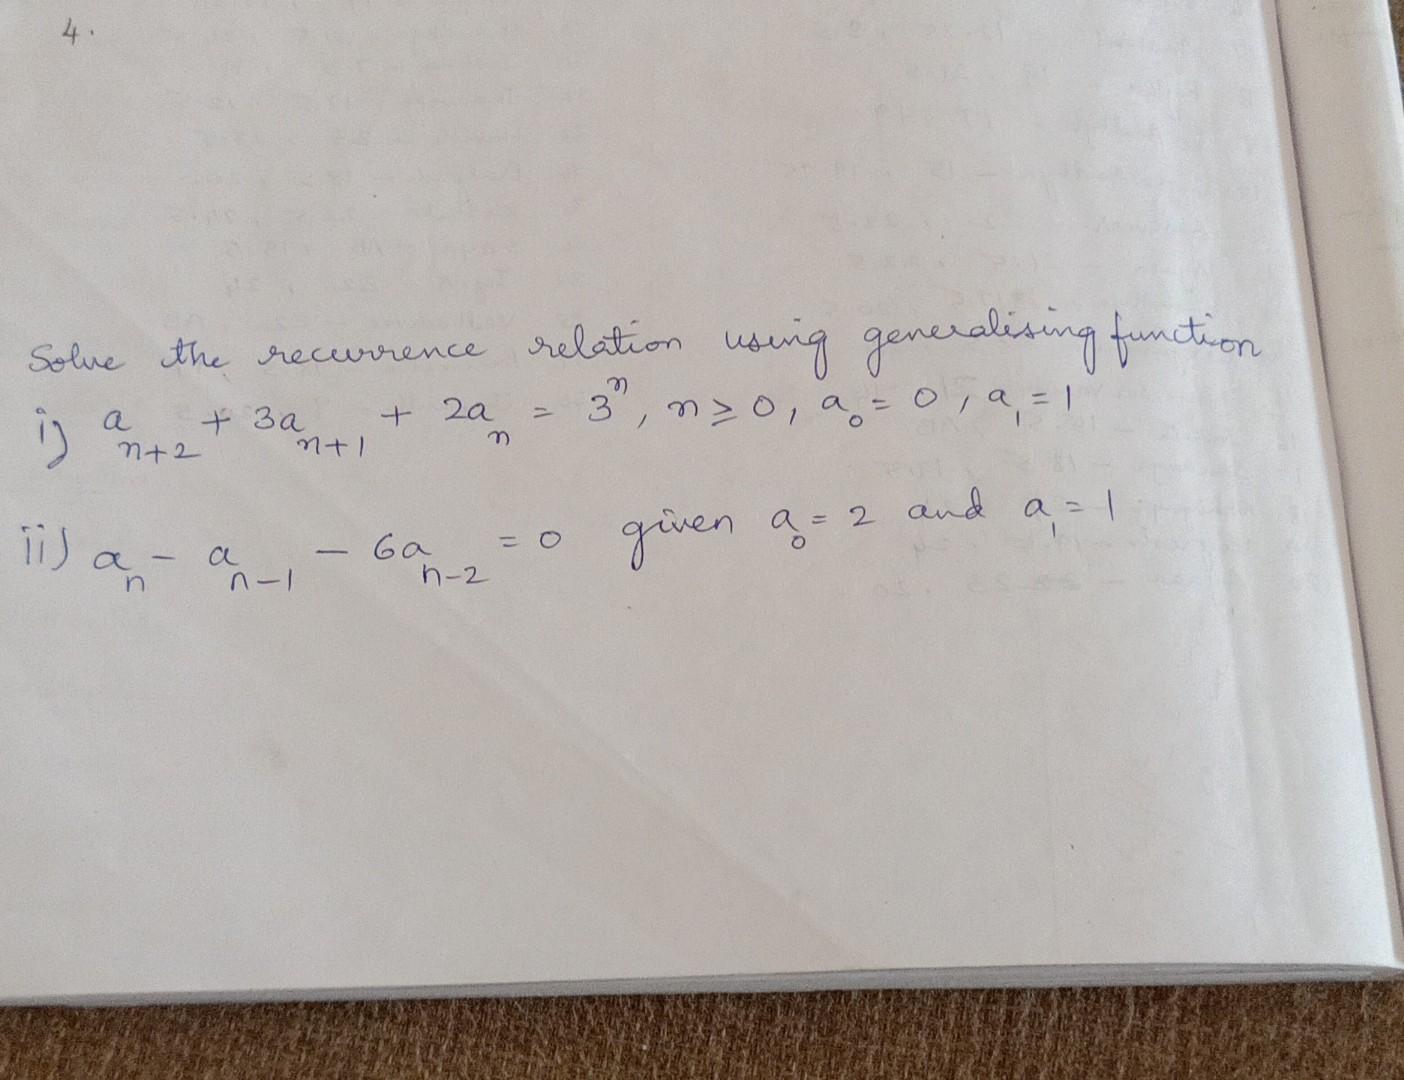 4.
Solve the recurrence relation using generalising function
i) a_{n+2} + 3a_{n+1} + 2a_n = 3^n, n ≥ 0, a_0 = 0, a_1 = 1
ii) a_n - a_{n-1} - 6a_{n-2} = 0 given a_0 = 2 and a_1 = 1